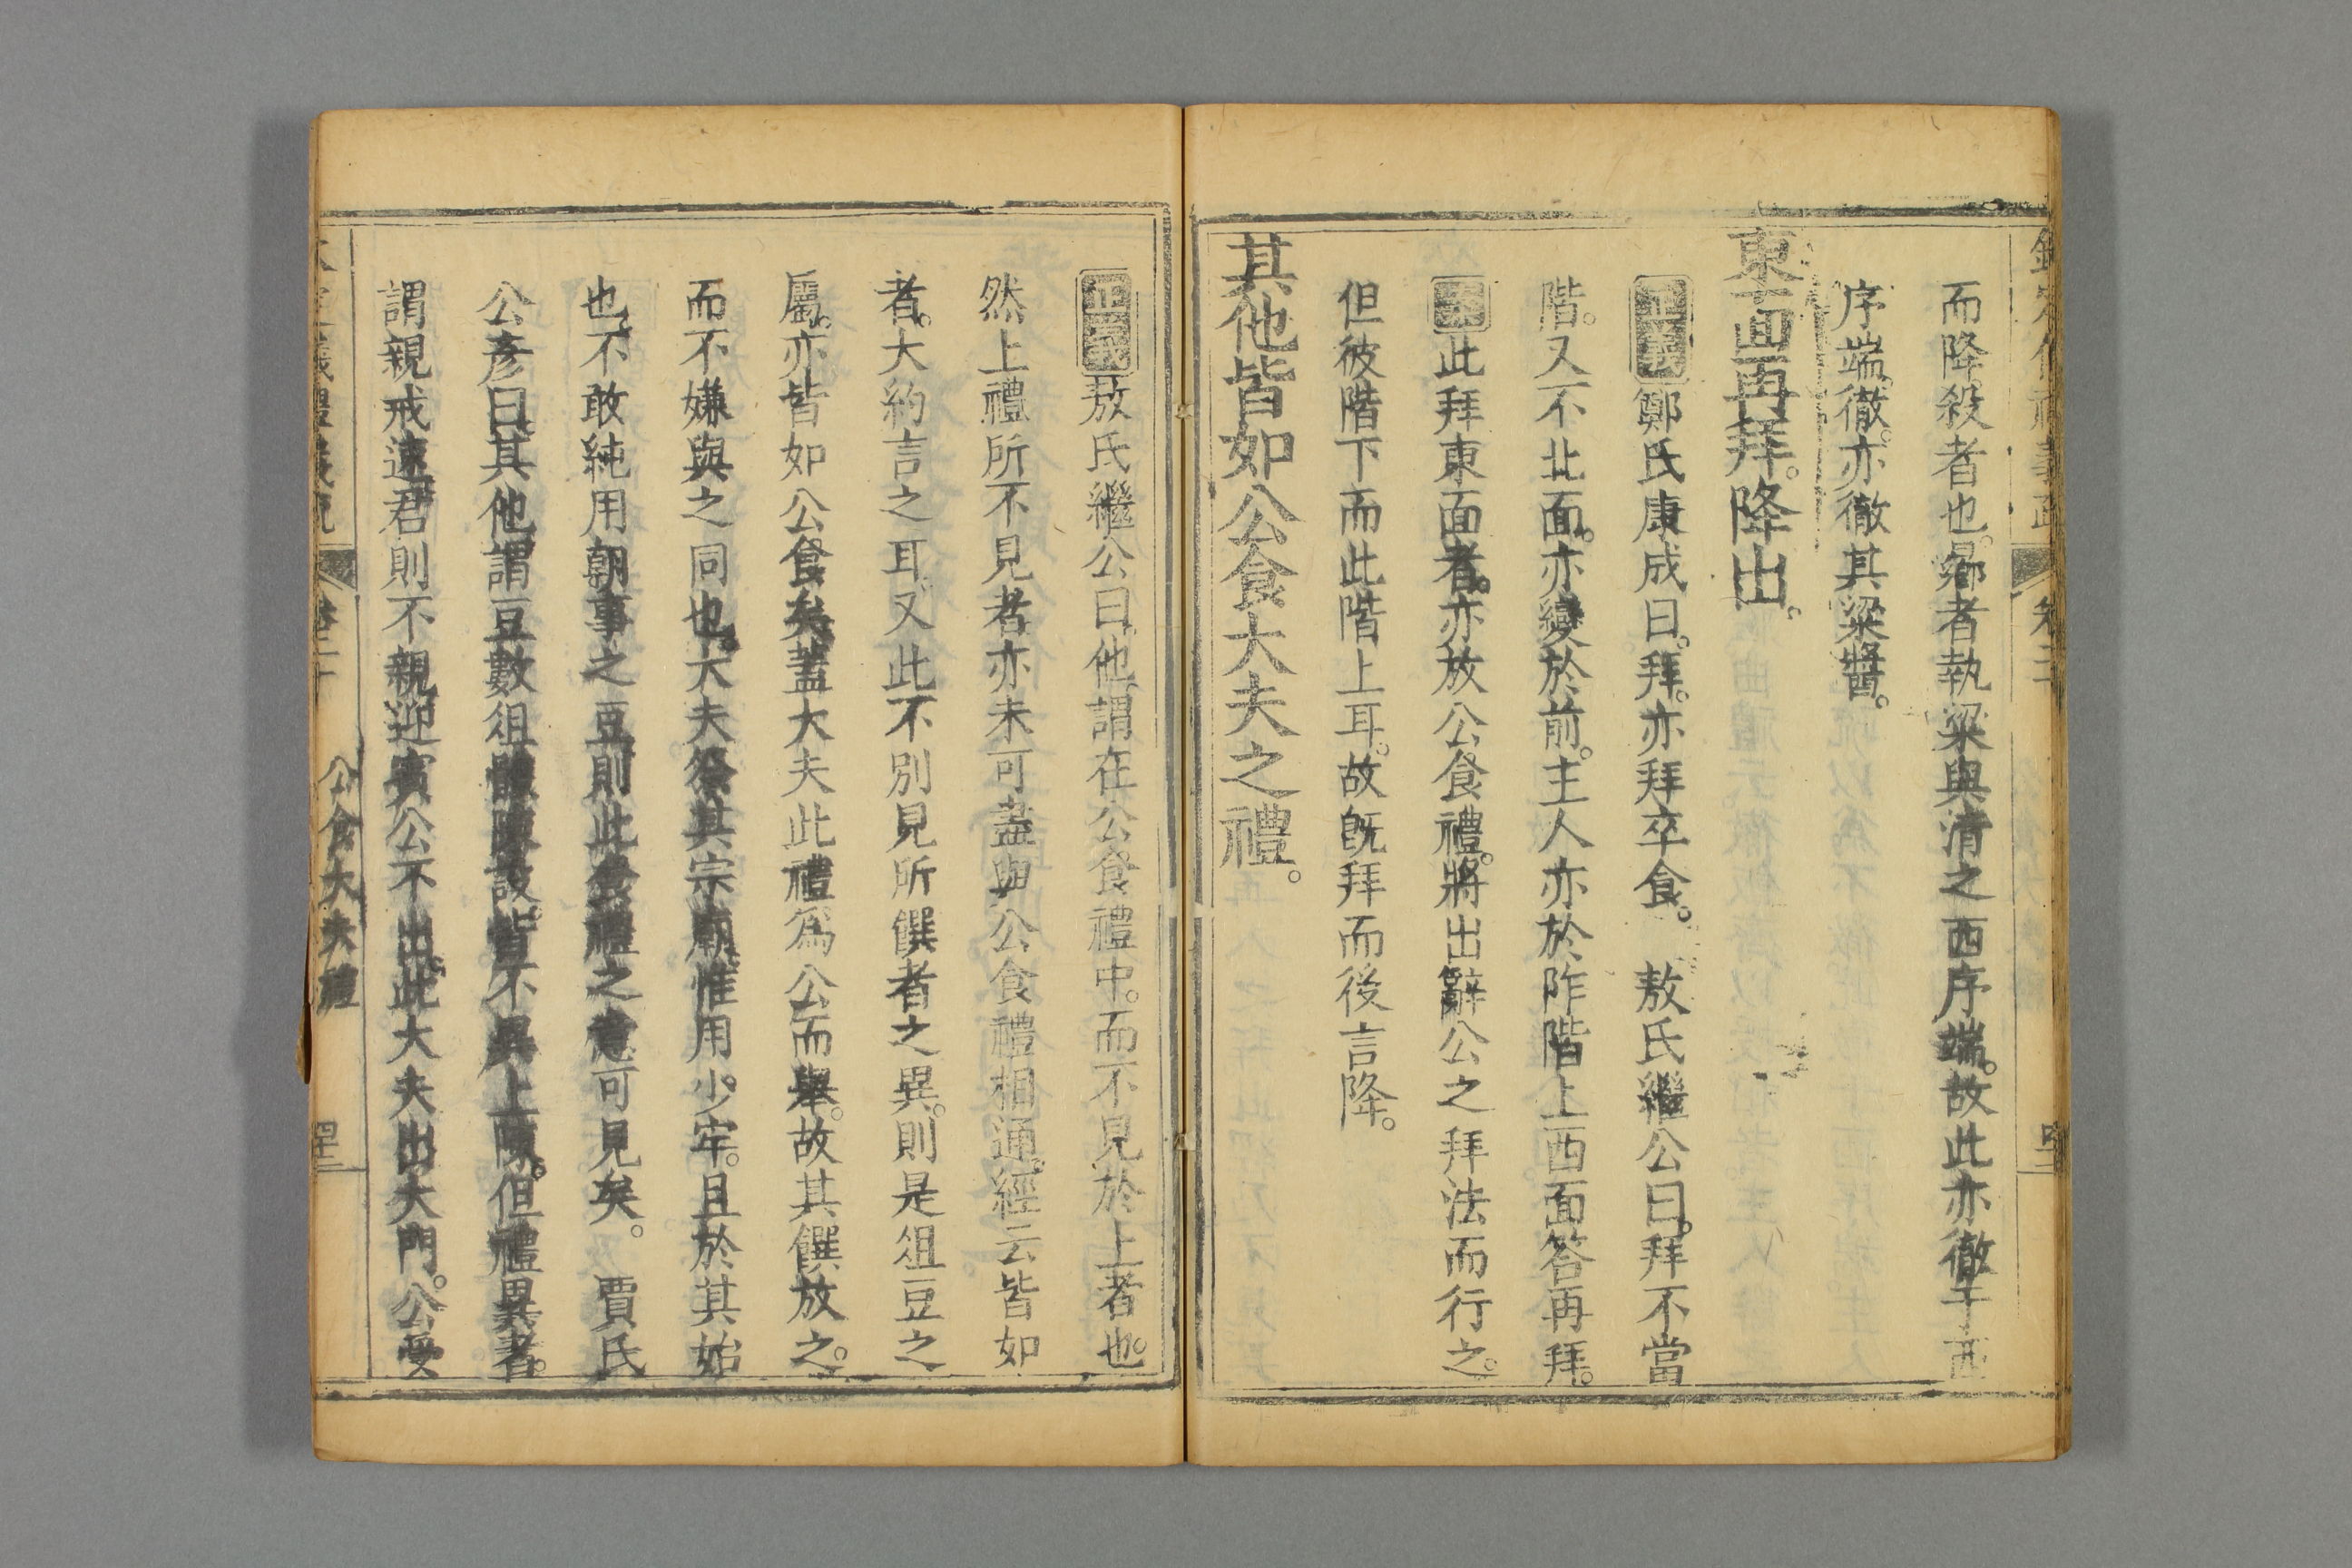 而降。殺者也。曏者執粱與湇之西序端。故此亦徹于西
序端。徹。亦徹其粱醬。
東面再拜。降出。
正義鄭氏康成曰。拜。亦拜卒食。 敖氏繼公曰。拜不當
階。又不北面。亦變於前。主人亦於阼階上西面答再拜。
案此拜東面者。亦放公食禮。將出辭公之拜法而行之。
但彼階下而此階上耳。故旣拜而後言降。
其他皆如公食大夫之禮。
正義敖氏繼公曰。他。謂在公食禮中。而不見於上者也。
然上禮所不見者。亦未可盡與公食禮相通。經云皆如
者。大約言之耳。又此不別見所饌者之異。則是俎豆之
屬。亦皆如公食矣。蓋大夫此禮爲公而舉。故其饌放之。
而不嫌與之同也。大夫祭其宗廟。惟用少牢。且於其始
也。不敢純用朝事之豆。則此食禮之意可見矣。 賈氏
公彥曰。其他。謂豆數俎體陳設。皆不異上陳。但禮異者。
謂親戒速。君則不親。迎賓公不出。此大夫出大門。公受
卷二十
公食大夫禮